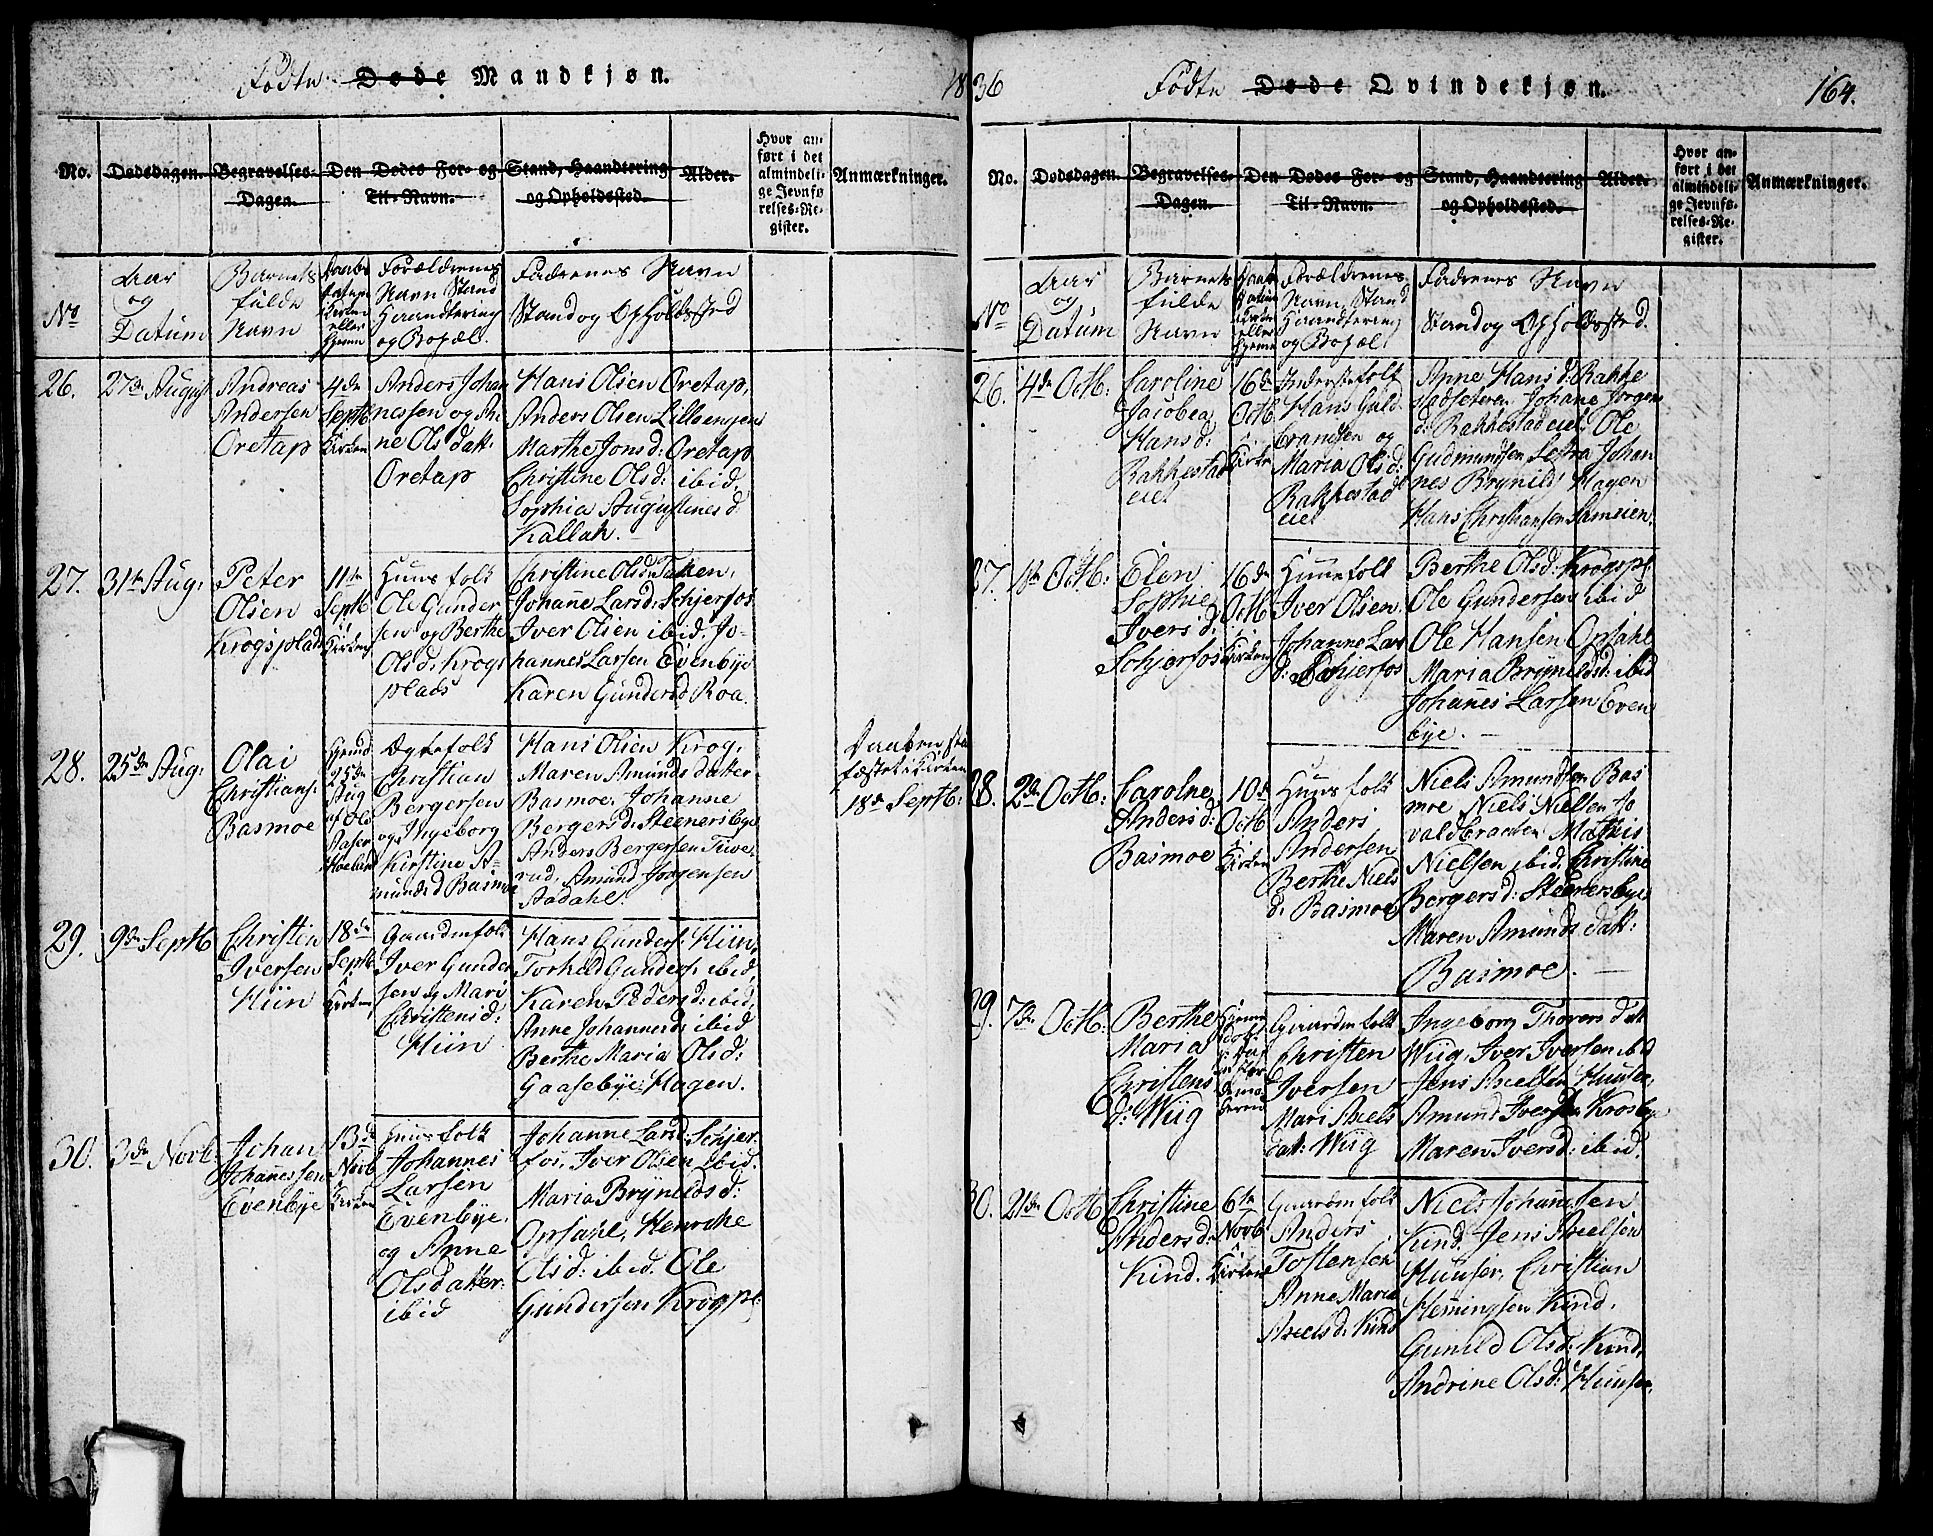 Fødte Døde Mandkjøn.
18
No.
Dødsdagen.
Begravelses-
Dagen.
Den Dødes For- og
Til-Navn.
Stand, Haandtering
og Opholdssted.
Alder.
Hvor an-
ført i det
almindeli-
ge Jevnfø-
relses-Re-
gister.
Anmærkninger.
No
Aar
og
Datum
Barnets
fulde
Navn
Daabs
Datum
Kirken
eller
Hjemme
Forældrenes
Navn Stand
Haandtering
og Bopæl.
Fadrenes Navn
Stand og Opholdssted
26.
27de August
Andreas
Andersen
Oretap
4de
Septb
Kirken
Anders Johan
nessen og An
ne Olsdatt:
Oretap
Hans Olsen Oretap,
Anders Olsen Lillsengen
Marthe Jonsd: Oretap
Christine Olsd: ibid.
Sophia Augustines d
Kallak.
27.
31te Aug:
Peter
Olsen
Krogsplads
11te
Septb
i
Kirken
Huusfolk
Ole Gunder
sen og Berthe
Olsd. Krogs
plads
Christine Olsd: Takken,
Johanne Larsd: Schjerfos
Iver Olsen ibid. Jo-
hannes Larsen Evenbye
Karen Gundersd Roa.
28.
25de Aug:
Olai
Christians:
Basmoe
Hjemd
25de
Aug
af Ols
Aaser
Moeland
Ægtefolk
Christian
Bergersen
og Ingeborg
Kirstine A-
munds d Basmoe
Hans Olsen Krog,
Maren Amunds datter
Basmoe, Johanne
Bergersd: Steenersbye
Anders Bergersen Tuve-
rud, Amund Jørgensen
Aadahl.
Daaben sta
fæstet i Kirken
18de Septb:
29.
9de Septb
Christen
Iversen
Hiin
18de
Septb
i
Kirken
Gaardmfolk
Iver Gunder
sen og Mari
Christensd:
Hiin
Hans Gunders: Hiin,
Torkild Gunders: ibid,
Karen Peders d: ibid,
Anne Johannesd: ibid
Berthe Maria Olsd:
Gaasebye: Hagen.
30.
3de Novb:
Johan
Johanessen
Evenbye
13de
Novb
i
Kirken
Huusfolk
Johannes
Larsen
Evenbye,
og Anne
Olsdatter:
ibid
Johanne Larsd: Schjer-
fos, Iver Olsen ibid.
Maria Bryneldsd:
Opsahl, Henrikke
Olsd: ibid. Ole
Gundersen Krogpl:
36
Fødte Døde Qvindekjøn.
164.
No.
Dødsdagen.
Begravelses-
Dagen.
Den Dødes For- og
Til-Navn.
Stand, Haandtering
og Opholdssted.
Alder.
Hvor an-
ført i det
almindeli-
ge Jevnfø-
relses-Re-
gister.
Anmærkninger.
No
Aar
og
Datum
Barnets
fulde
Navn
Daabs
Datum
Kirken
eller
Hjeme
Forældrenes
Navn, Stand
Haandtering
og Bopæl
Fadrenes Navn
Stand og Opholdssted.
26.
4de Octb:
Caroline
Jacobea
Hansd:
Rakkestad
eiet
16de
Octb
i
Kirken
Inderstefolk
Hans Guld
brandsen og
Maria Olsd:
Rakkestad
eiet
Anne Hansd: Rakke
stadseteren, Johane Jørgens
d: Rakkestadeiet, Ole
Gudmundsen Lesra Johan
nes Brynilds Hagen
Hans Christiansen Sameien.
27.
1ste Octb:
Elen
Sophie
Ivers d:
Schjerfos
16de
Octb
i
Kirken
Hunefolk
Iver Olsen
Johanne Lars
d: Schjerfos
Berthe Olsd: Krogspl
Ole Gundersen ibid
Ole Hansen Opsahl
Maria Bryneldsd: ibid
Johanes Larsen Even
bye. —
28.
2de Octb:
Carolne
Andersd:
Basmoe
10de
Octb
i
Kirken
Huusfolk
Anders
Andersen
Berthe Niels
d. Basmoe
Niels Amundsen Bas
moe, Niels Nielsen To
valdbraaten, Mathis
Nielsen ibid, Christine
Bergersd: Steenersbye
Maren Amunds datt:
Basmoe. —
29.
7de Octb:
Berthe
Maria
Christens
d: Wiig
Gaardmfolk
Christen
Iversen
Mari Axels
datt: Wiig
Ingeborg Thorers datt
Wiig, Iver Iversen ibid
Jens Axelsen Huuser,
Amund Iversen Krosbye
Maren Iversd: ibid.
30.
21de Octb
Christine
Andersd:
Kind.
6te
Novb
i
Kirken
Gaardmfolk
Anders
Tostensen
Anne Maria
Axelsd: Kind
Niels Johansen
Kind, Jens Axelsen
Huuser, Christian
Hemingsen Kind,
Gunild Olsd: Kind,
Andrine Olsd: Huuser.